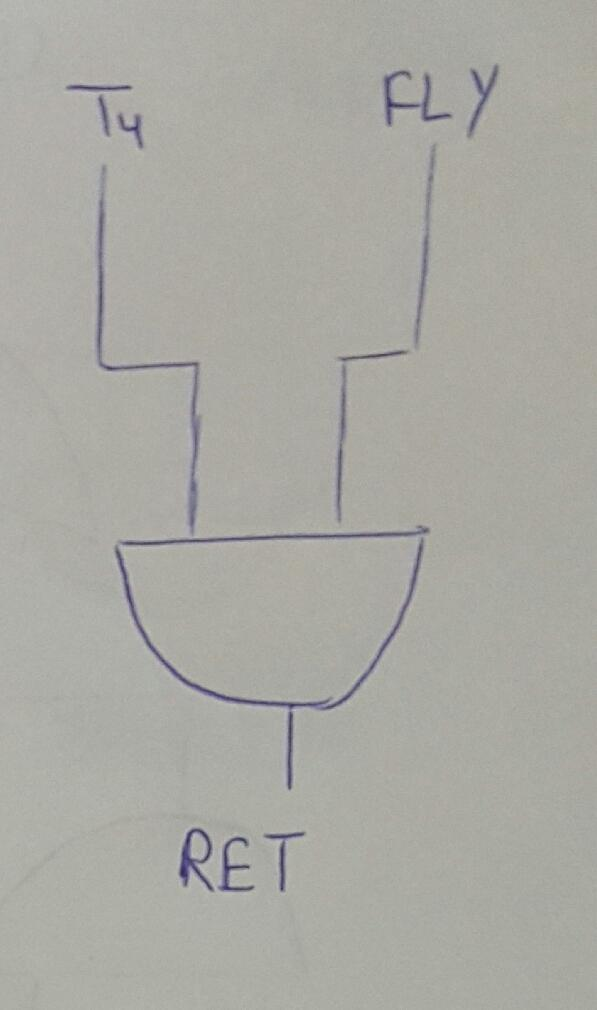 T4
FLY
RET